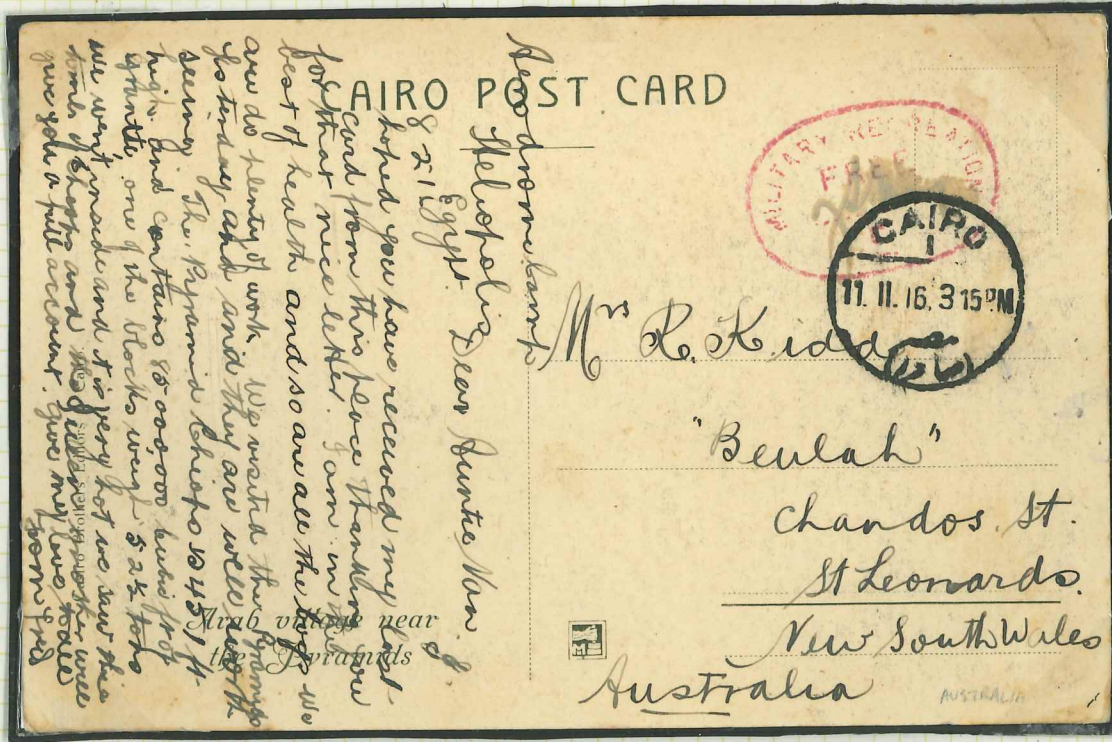 CAIRO POST CARD
MILITARY RECREATION
FREE
CAIRO
1
11. II. 16. 3 15 PM
مصر
Mrs R. Kidd
"Beulah"
Chandos St.
St Leonards.
New South Wales
Australia
AUSTRALIA
Arab village near
the Pyramids
Aerodrome Camp
Heliopolis
Egypt. Dear Auntie Nan.
8 2 16
I hoped you have received my last
card from this place thank you
for that nice letter. I am in the
best of health and so are all the boys we
are do plenty of work. We visited the Pyramids
yesterday and and they are well worth
seeing. The Pyramid Cheops is 451 ft
high and contains 85 000,000 cubic ft of
granite, one of the blocks weigh 5 2½ tons
we went inside and it is very hot we saw the
tombs of Cheops and his mother will
give you a full account. Give my love to all
from Fred